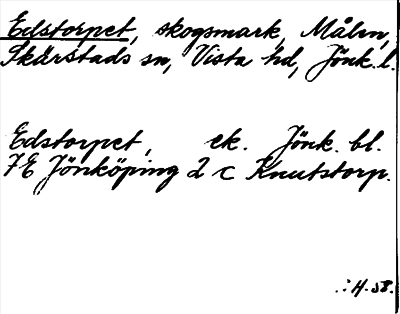 Edstorpet, skogsmark, Målen,
Skärstads sn, Vista hd, Jönk. l.
Edstorpet, ek. Jönk. bl.
7E Jönköping 2 c Knutstorp.
.:H.58.